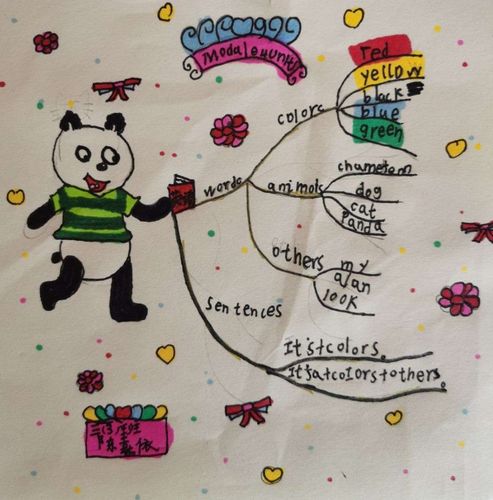 Modale4unit1
words
colors
red
yellow
black
blue
green
animals
chameteon
dog
cat
Panda
others
my
a/an
look
sentences
It's+colors.
It's+a+colors+others.